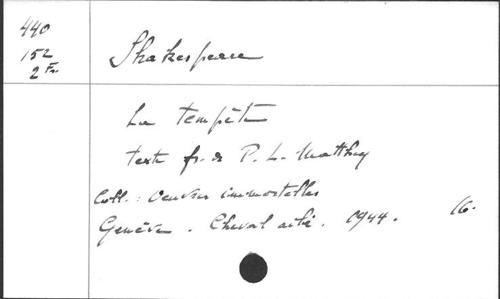 440
152
2 Fr.
Shakespeare
La tempête
texte fr. de P. L. Matthey
Coll. : Oeuvres immortelles
Genève. Cheval ailé. 1944. 16.